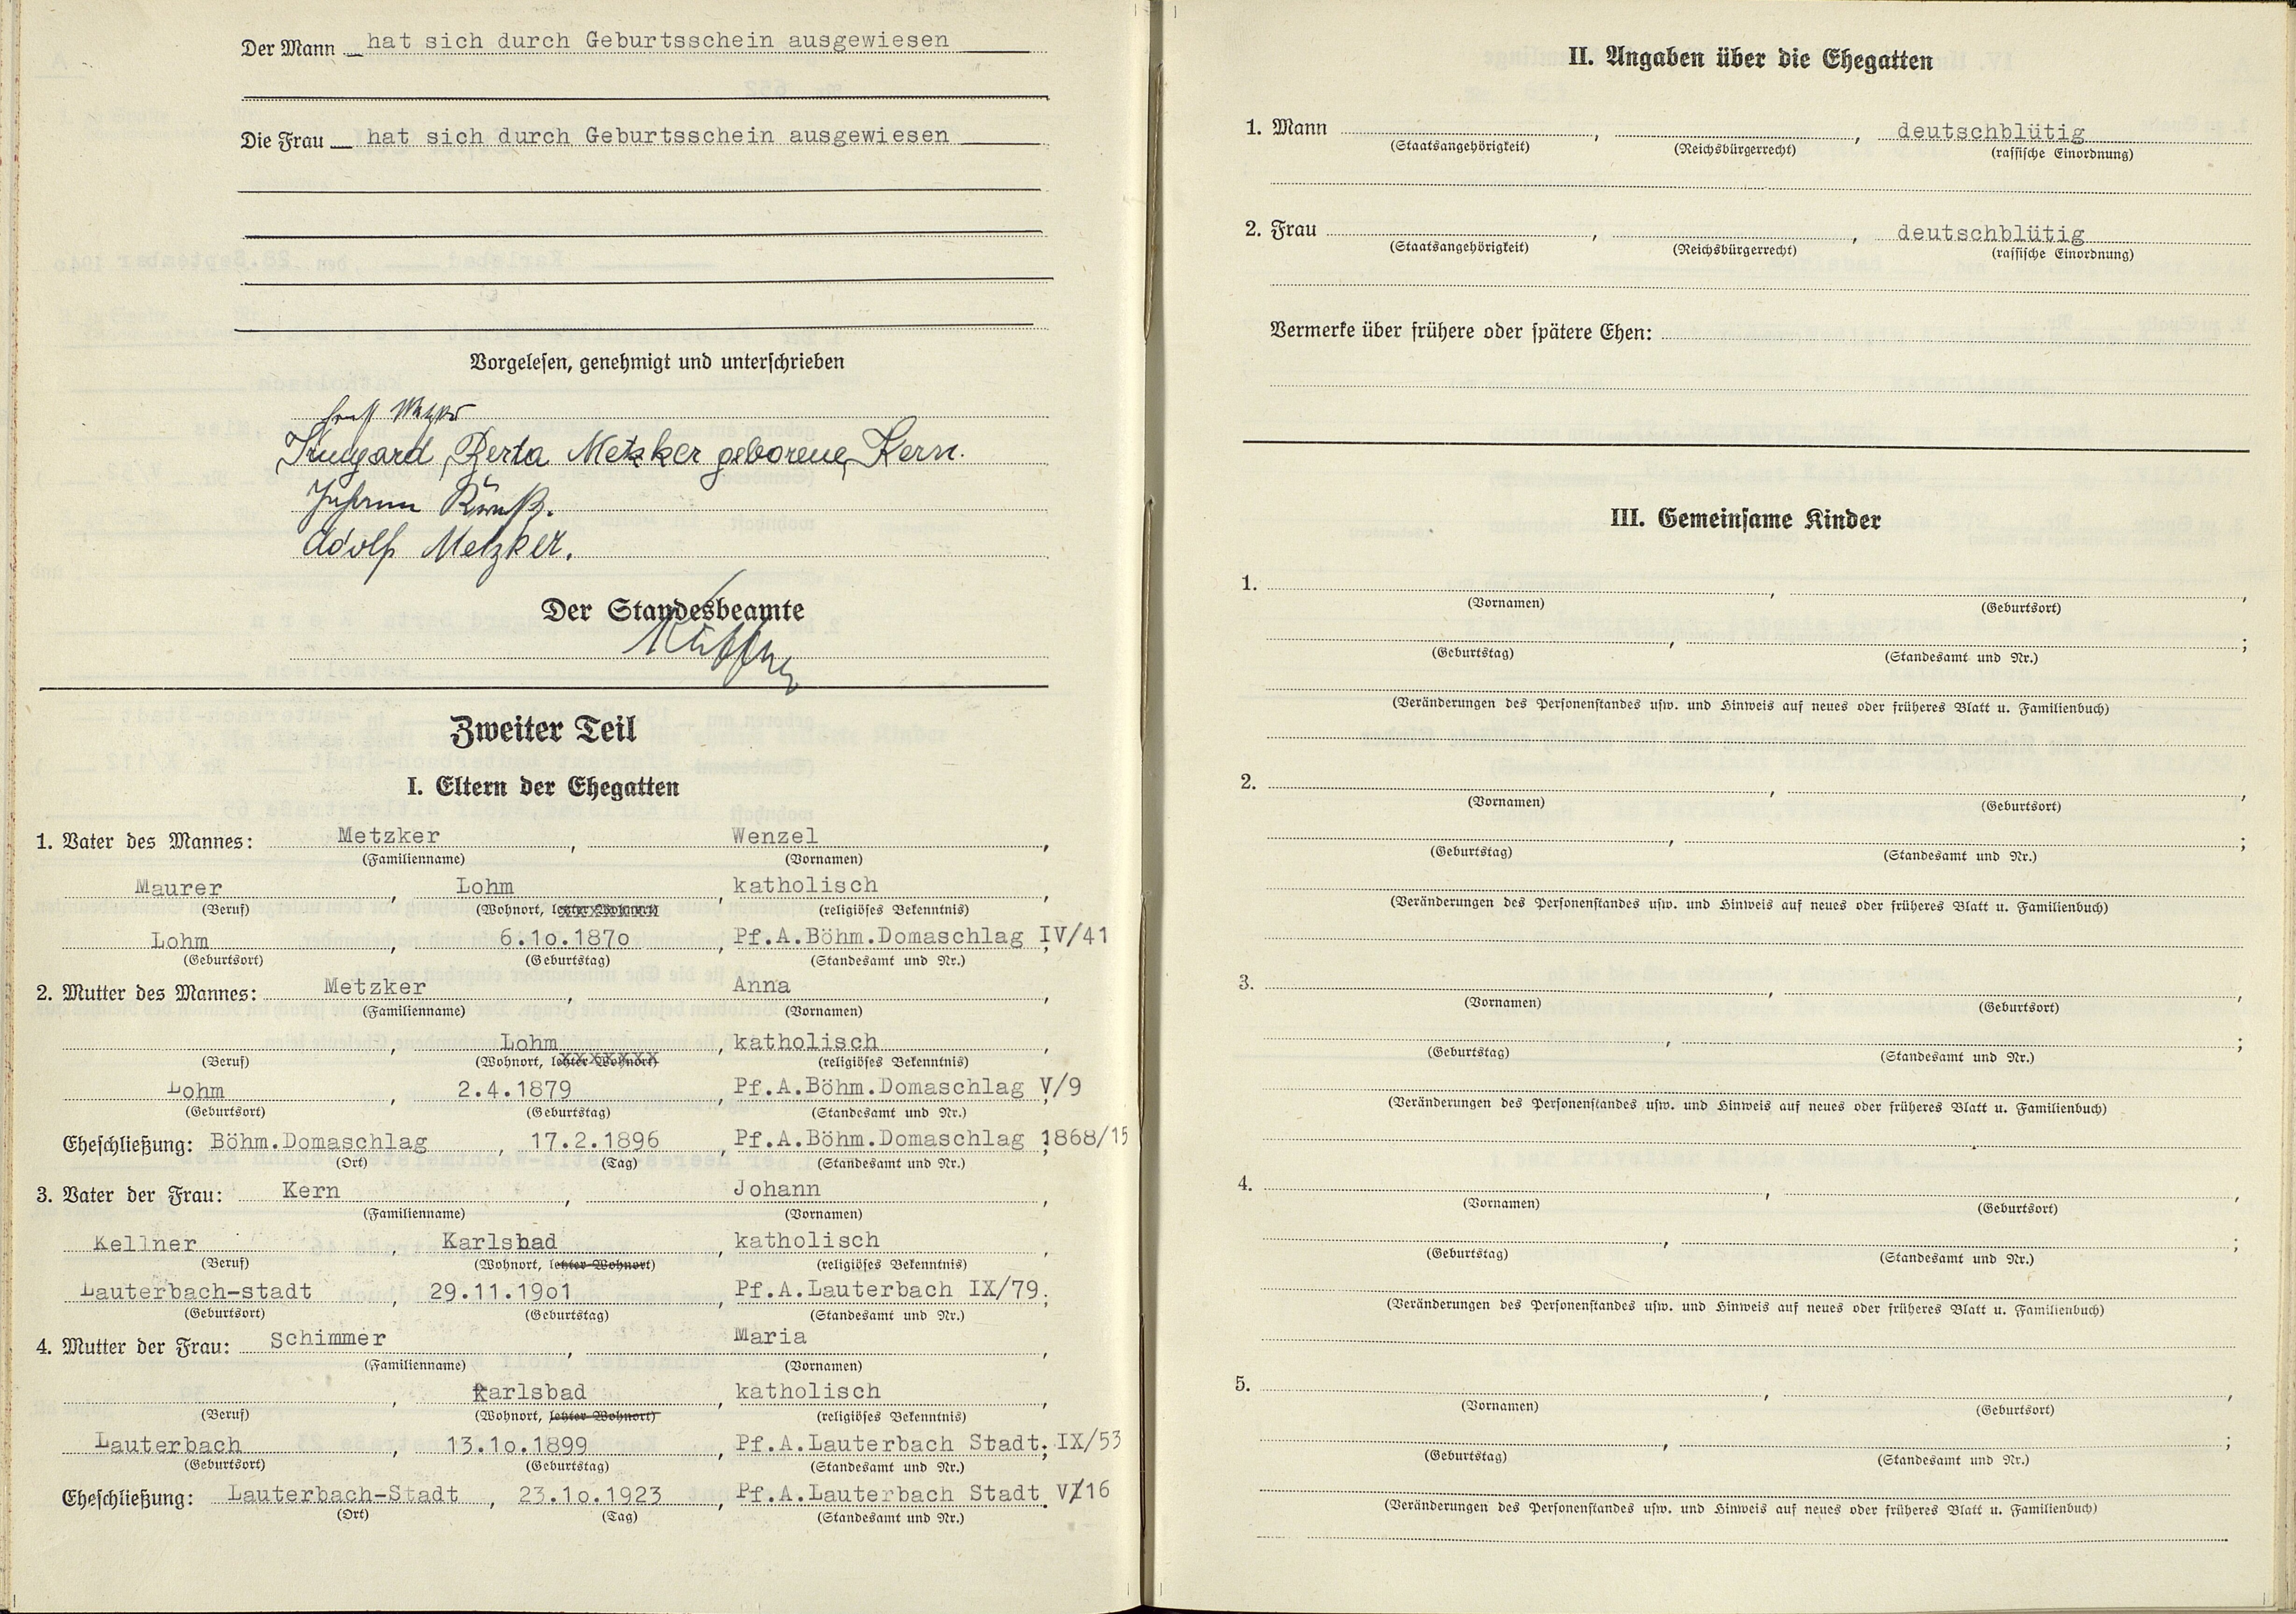 Der Mann hat sich durch Geburtsschein ausgewiesen
Die Frau hat sich durch Geburtsschein ausgewiesen
Vorgelesen, genehmigt und unterschrieben
Ernst Metzker
Irmgard Berta Metzker geborene Kern.
Johann
Adolf Metzker.
Der Standesbeamte
Zweiter Teil
I. Eltern der Ehegatten
1. Vater des Mannes: Metzker, Wenzel,
(Familienname) (Vornamen)
Maurer, Lohm, katholisch,
(Beruf) (Wohnort, letzter Wohnort) (religiöses Bekenntnis)
Lohm, 6.1o.187o, Pf.A.Böhm.Domaschlag IV/41;
(Geburtsort) (Geburtstag) (Standesamt und Nr.)
2. Mutter des Mannes: Metzker, Anna,
(Familienname) (Vornamen)
, Lohm, katholisch,
(Beruf) (Wohnort, letzter Wohnort) (religiöses Bekenntnis)
Lohm, 2.4.1879, Pf.A.Böhm.Domaschlag V/9;
(Geburtsort) (Geburtstag) (Standesamt und Nr.)
Eheschließung: Böhm.Domaschlag, 17.2.1896, Pf.A.Böhm.Domaschlag 1868/15
(Ort) (Tag) (Standesamt und Nr.)
3. Vater der Frau: Kern, Johann,
(Familienname) (Vornamen)
Kellner, Karlsbad, katholisch,
(Beruf) (Wohnort, letzter Wohnort) (religiöses Bekenntnis)
Lauterbach-stadt, 29.11.19o1, Pf.A.Lauterbach IX/79;
(Geburtsort) (Geburtstag) (Standesamt und Nr.)
4. Mutter der Frau: Schimmer, Maria,
(Familienname) (Vornamen)
, Karlsbad, katholisch,
(Beruf) (Wohnort, letzter Wohnort) (religiöses Bekenntnis)
Lauterbach, 13.1o.1899, Pf.A.Lauterbach Stadt; IX/53
(Geburtsort) (Geburtstag) (Standesamt und Nr.)
Eheschließung: Lauterbach-Stadt, 23.1o.1923, Pf.A.Lauterbach Stadt. V/16
(Ort) (Tag) (Standesamt und Nr.)
II. Angaben über die Ehegatten
1. Mann , , deutschblütig
(Staatsangehörigkeit) (Reichsbürgerrecht) (rassische Einordnung)
2. Frau , , deutschblütig
(Staatsangehörigkeit) (Reichsbürgerrecht) (rassische Einordnung)
Vermerke über frühere oder spätere Ehen:
III. Gemeinsame Kinder
1. , ,
(Vornamen) (Geburtsort)
, ;
(Geburtstag) (Standesamt und Nr.)
(Veränderungen des Personenstandes usw. und Hinweis auf neues oder früheres Blatt u. Familienbuch)
2. , ,
(Vornamen) (Geburtsort)
, ;
(Geburtstag) (Standesamt und Nr.)
(Veränderungen des Personenstandes usw. und Hinweis auf neues oder früheres Blatt u. Familienbuch)
3. , ,
(Vornamen) (Geburtsort)
, ;
(Geburtstag) (Standesamt und Nr.)
(Veränderungen des Personenstandes usw. und Hinweis auf neues oder früheres Blatt u. Familienbuch)
4. , ,
(Vornamen) (Geburtsort)
, ;
(Geburtstag) (Standesamt und Nr.)
(Veränderungen des Personenstandes usw. und Hinweis auf neues oder früheres Blatt u. Familienbuch)
5. , ,
(Vornamen) (Geburtsort)
, ;
(Geburtstag) (Standesamt und Nr.)
(Veränderungen des Personenstandes usw. und Hinweis auf neues oder früheres Blatt u. Familienbuch)